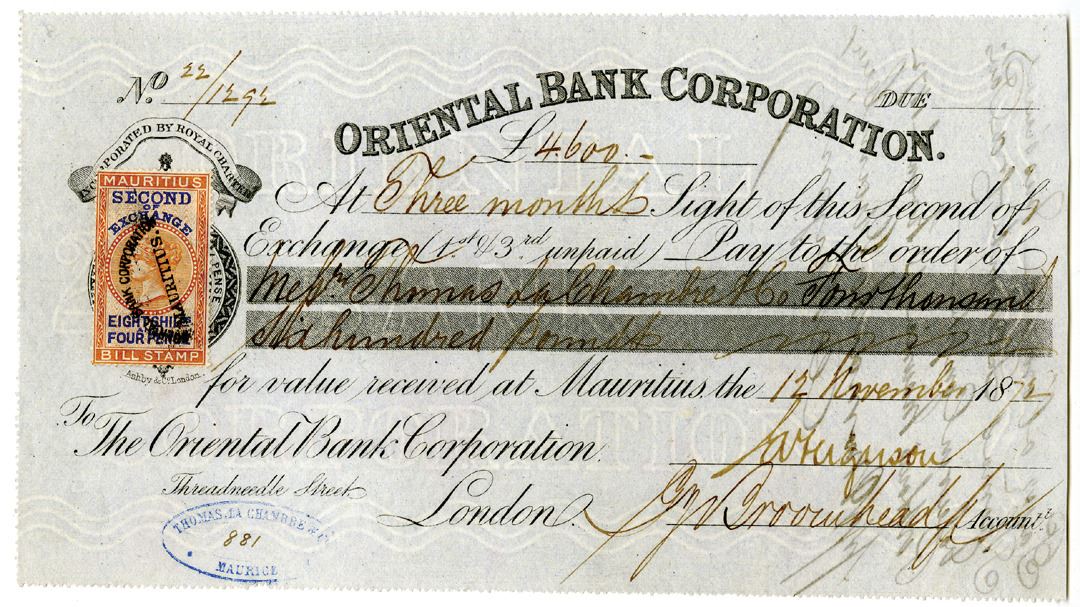 No. 22/1292
ORIENTAL BANK CORPORATION.
DUE
£4600.-
INCORPORATED BY ROYAL CHARTER
At Three months Sight of this Second of
Exchange (1st & 3rd unpaid) Pay to the order of
Messrs Thomas La Chambre & Co Four thousand
Six hundred pounds
MAURITIUS
SECOND
OF
EXCHANGE
BANK CORPORATION
MAURITIUS.
EIGHT SHILS
FOUR PENCE
BILL STAMP
Ashby & Co London.
for value received at Mauritius the 12 November 1872
To
The Oriental Bank Corporation.
WFerguson
Threadneedle Street
London.
Geo Broomhead Accountt.
THOMAS LA CHAMBRE & Co
881
MAURICE